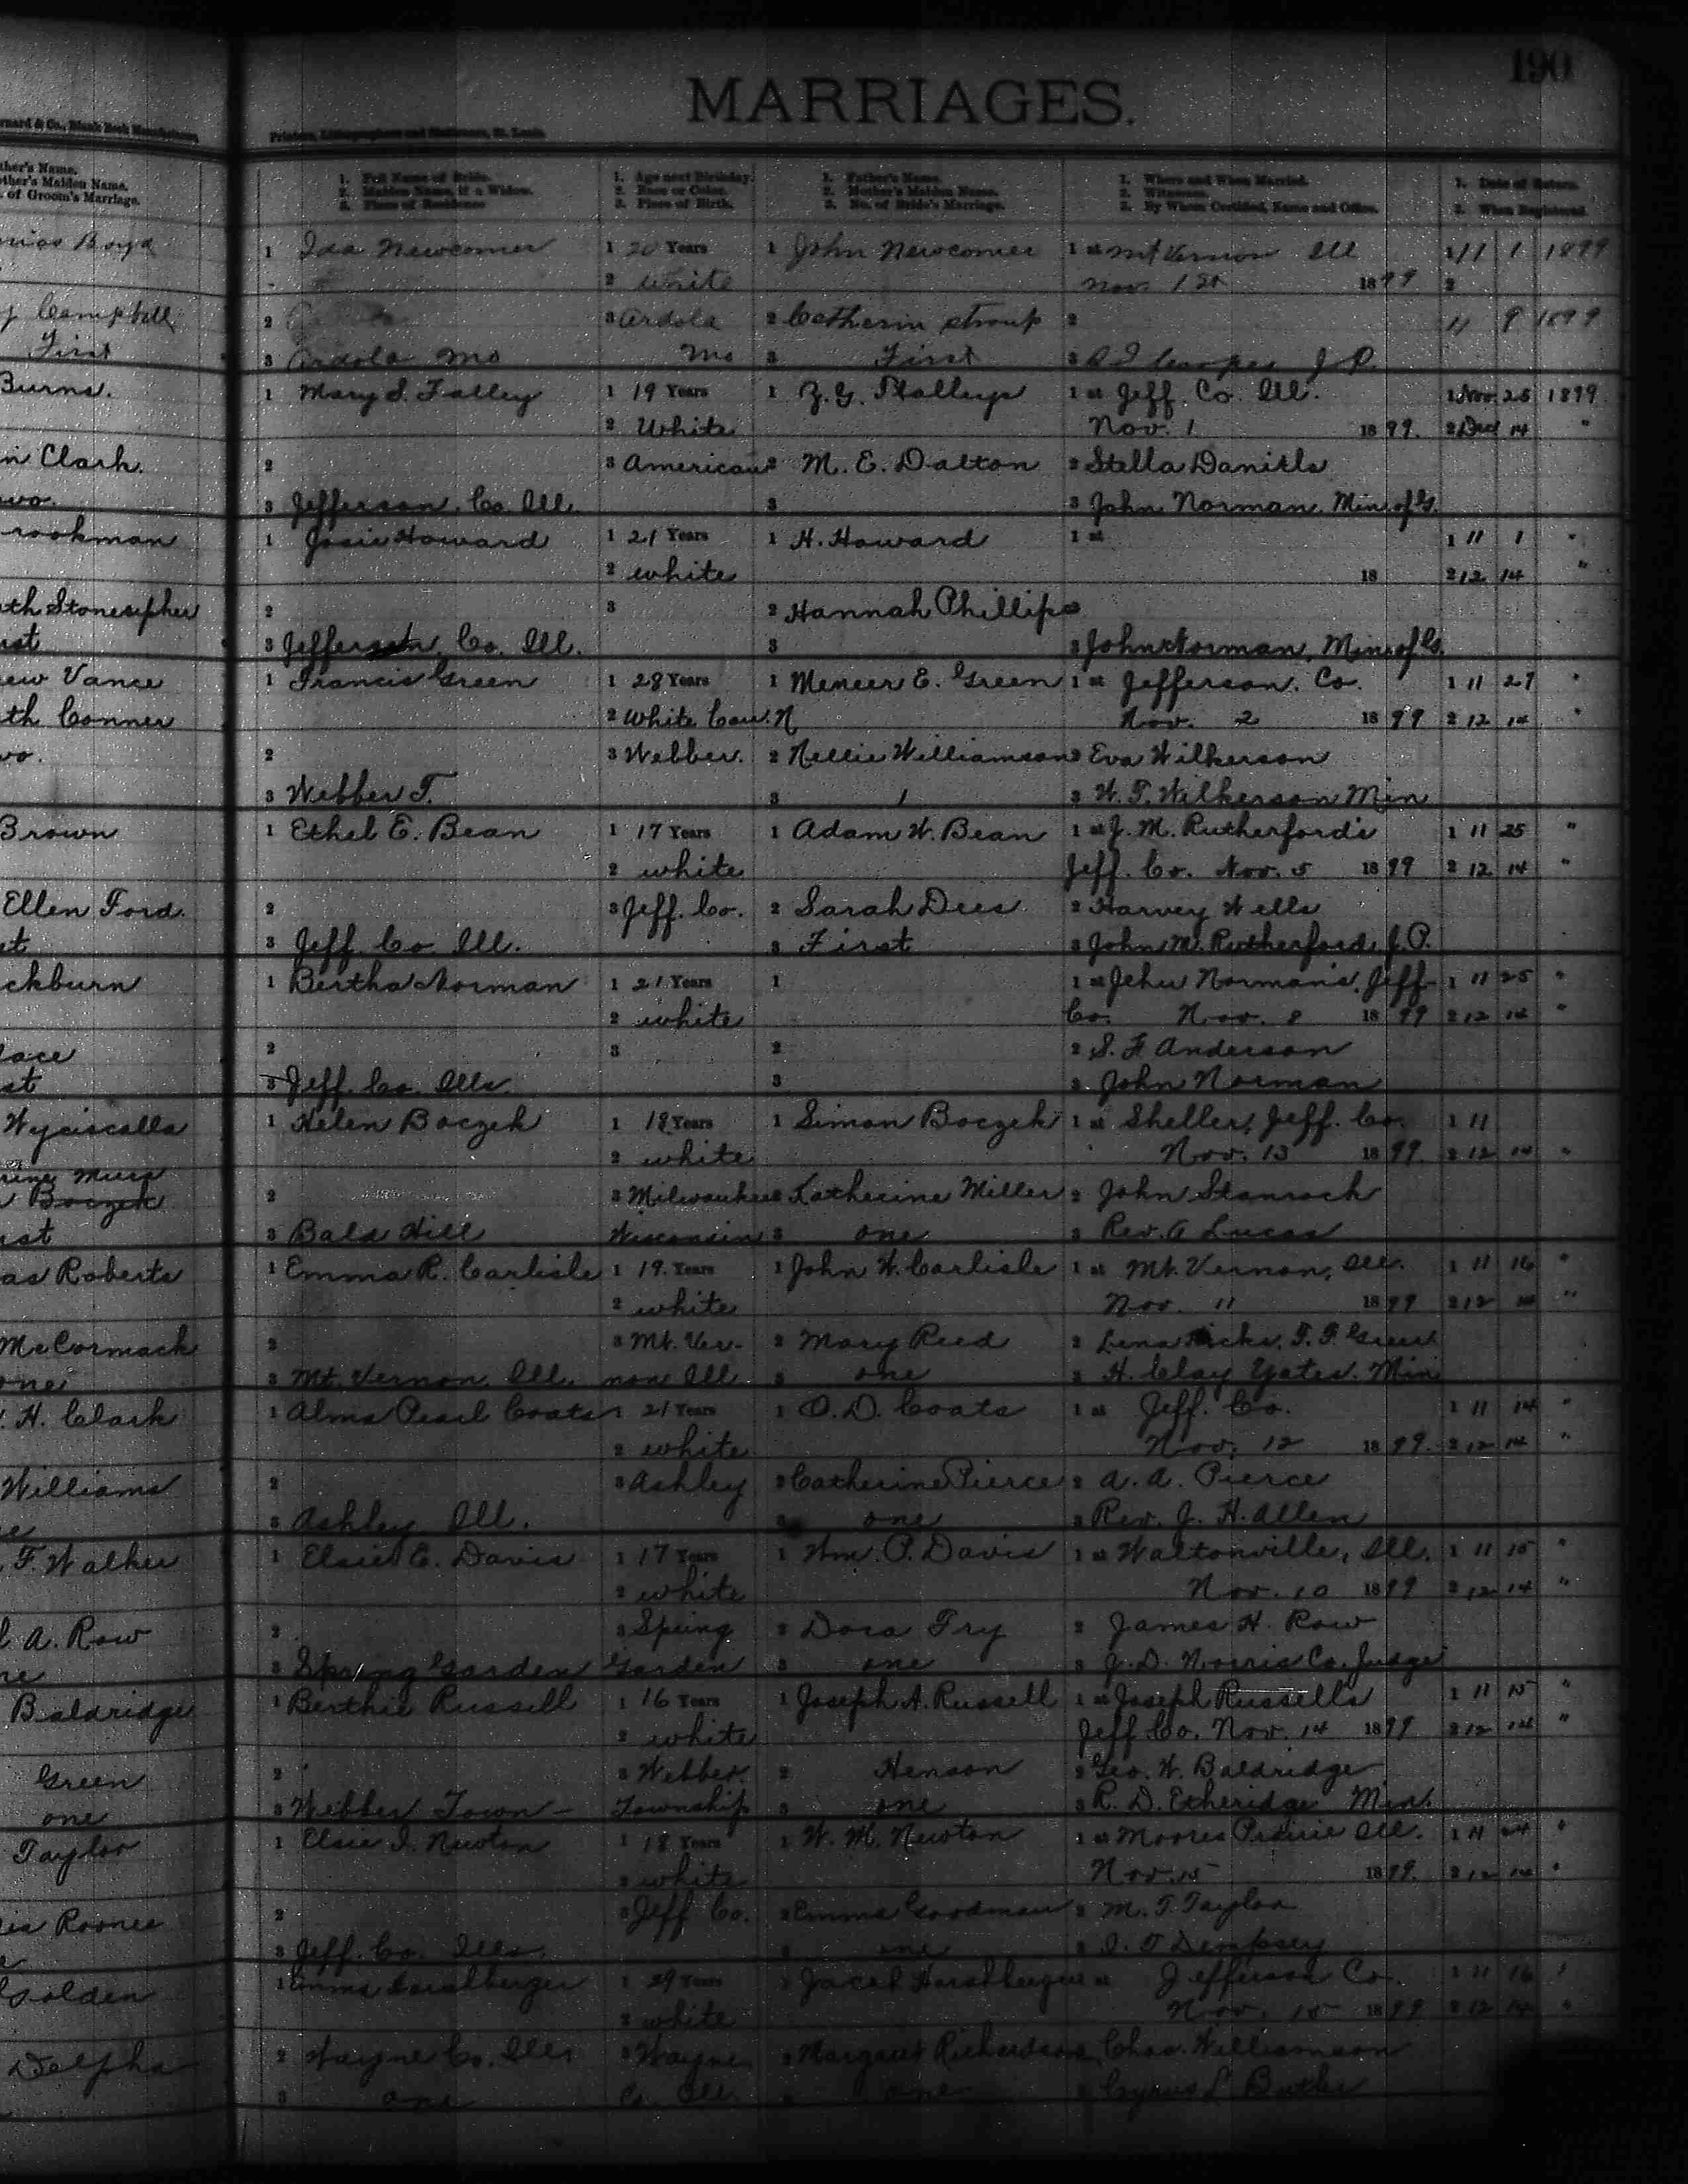 190
MARRIAGES.
nard & Co., Blank Book Manufacturers,
Printers, Lithographers and Stationers, St. Louis.
ther's Name.
ther's Maiden Name.
of Groom's Marriage.
1. Full Name of Bride.
2. Maiden Name, if a Widow.
3. Place of Residence
1. Age next Birthday.
2. Race or Color.
3. Place of Birth.
1. Father's Name.
2. Mother's Maiden Name.
3. No. of Bride's Marriage.
1. Where and When Married.
2. Witnesses.
3. By Whom Certified, Name and Office.
1. Date of Return.
2. When Registered.
Boyd 1 Ida Newcomer 1 20 Years 1 John Newcomer 1 at Mt Vernon Ill 1 11 1 1899
2 white Nov 1st 1899 2
Campbell 2 3 Ardola 2 Catherin Stroup 2 11 9 1899
First 3 Ardola Mo Mo 3 First 3 J.P.
Burns. 1 Mary S. Talley 1 19 Years 1 Z. G. Talleys 1 at Jeff. Co. Ill. 1 Nov. 25 1899
2 White Nov. 1 1899. 2 Dec 14 "
n Clark. 2 3 American 2 M. E. Dalton 2 Stella Daniels
wo. 3 Jefferson. Co. Ill. 3 3 John Norman, Min. of G.
rookman 1 Josie Howard 1 21 Years 1 H. Howard 1 at 1 11 1 "
2 white 18 2 12 14 "
th Stonesipher 2 3 2 Hannah Phillips
st 3 Jefferson, Co. Ill. 3 3 John Norman, Min. of G.
ew Vance 1 Francis Green 1 28 Years 1 Meneer E. Green 1 at Jefferson. Co. 1 11 27 "
th Conner 2 White Cau. N Nov. 2 1899 2 12 14 "
wo. 2 3 Webber. 2 Nellie Williamson 2 Eva Wilkerson
3 Webber T. 3 1 3 W. T. Wilkerson Min
Brown 1 Ethel E. Bean 1 17 Years 1 Adam W. Bean 1 at J. M. Rutherford's 1 11 25 "
2 white Jeff. Co. Nov. 5 1899 2 12 14 "
Ellen Ford. 2 3 Jeff. Co. 2 Sarah Dees 2 Harvey Wells
st 3 Jeff. Co. Ill. 3 First 3 John M. Rutherford, J.P.
ckburn 1 Bertha Norman 1 21 Years 1 1 at Jehu Norman's, Jeff 1 11 25 "
2 white Co. Nov. 8 1899 2 12 14 "
lace 2 3 2 2 S. F. Anderson
st 3 Jeff. Co. Ills. 3 3 John Norman
Wyciscalla 1 Helen Boczek 1 18 Years 1 Simon Boczek 1 at Sheller, Jeff. Co. 1 11
2 white Nov. 13 1899. 2 12 14 "
rine
Boczek 2 3 Milwaukee 2 Katherine Miller 2 John Stanroch
st 3 Bald Hill Wisconsin 3 one 3 Rev. A Lucas
as Roberts 1 Emma R. Carlisle 1 19. Years 1 John W. Carlisle 1 at Mt. Vernon, Ill. 1 11 16 "
2 white Nov. 11 1899 2 12 14 "
McCormack 2 3 Mt. Ver- 2 Mary Reed 2 Lena Hicks, T. F. Green
one 3 Mt. Vernon, Ill. non Ill 3 one 3 H. Clay Yates. Min
. H. Clark 1 Alma Pearl Coats 1 21 Years 1 O. D. Coats 1 at Jeff. Co. 1 11 14 "
2 white Nov. 12 1899. 2 12 14 "
Williams 2 3 Ashley 2 Catherine Pierce 2 A. A. Pierce
e 3 Ashley Ill. 3 one 3 Rev. J. H. Allen
. F. Walker 1 Elsie E. Davis 1 17 Years 1 Wm. P. Davis 1 at Waltonville, Ill. 1 11 15 "
2 white Nov. 10 1899 2 12 14 "
l A. Row 2 3 Spring 2 Dora Fry 2 James H. Row
ne 3 Spring Garden Garden 3 one 3 J. D. Norris Co. Judge
Baldridge 1 Berthie Russell 1 16 Years 1 Joseph A. Russell 1 at Joseph Russells 1 11 15 "
2 white Jeff Co. Nov. 14 1899 2 12 14 "
Green 2 3 Webber. 2 Henson 2 Geo. W. Baldridge
one 3 Webber Town- Township 3 one 3 R. D. Etheridge Min.
Taylor 1 Elsie I. Newton 1 18 Years 1 W. M. Newton 1 at Moores Prairie Ill. 1 11 24 "
2 white Nov. 15 1899. 2 12 14 "
Roonce 2 3 Jeff Co. 2 Emma Goodman 2 M. T. Taylor
e 3 Jeff. Co. Ills. 3 one 3 Dempsey
Golden 1 Emma 1 29 Years Jacob Harshbarger at Jefferson Co. 1 11 16 "
2 white Nov. 15 1899 2 12 14 "
Delpha 2 Wayne Co. Ills 3 Wayne 2 Margaret Richardson Chas. Williamson
3 one Co. Ills one 3 Cyrus L Butler